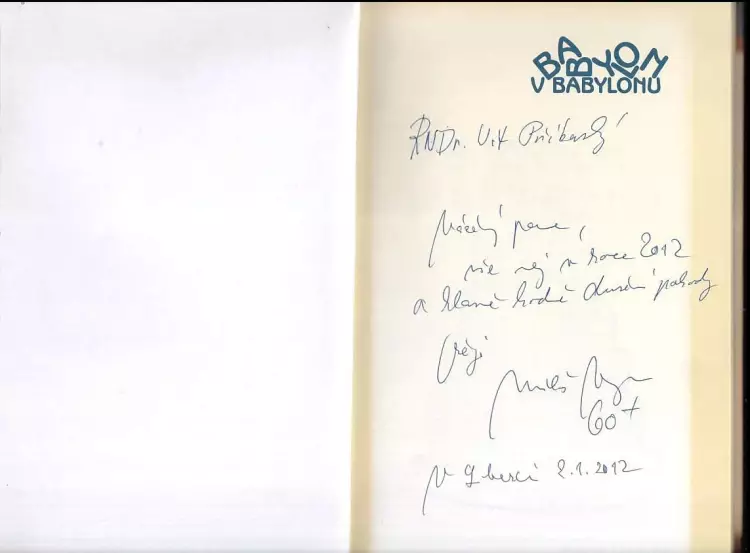 BABYLON
V BABYLONU
RNDr. Vít
Vážený pane,
vše nej v roce 2012
a hlavně hodně duševní pohody
přeji
Miloš
60+
V Liberci 2.1.2012